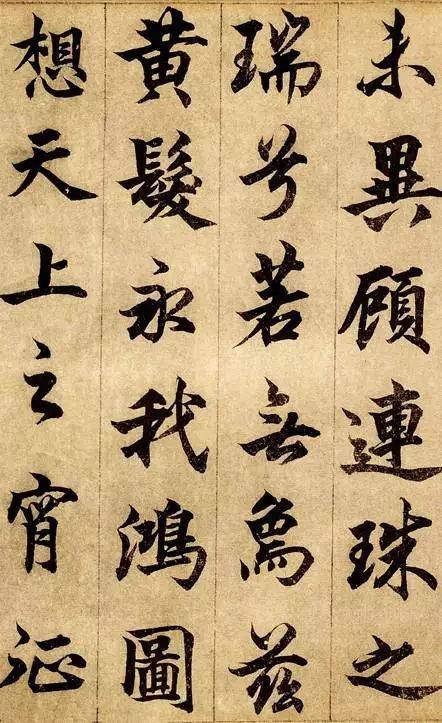 未異顧連珠之
瑞兮若無為茲
黄髮永我鴻圖
想天上之宵征